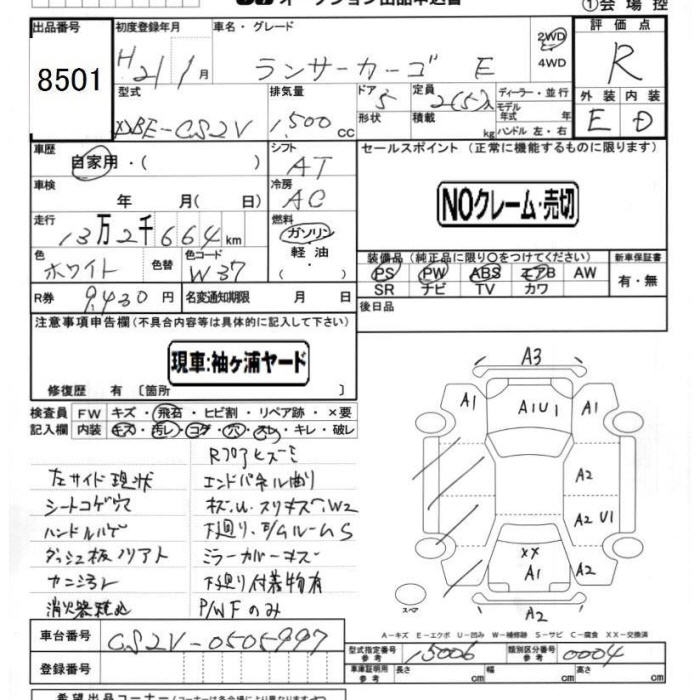 出品番号
8501
初度登録年月
H21/1月
車名・グレード
ランサーカーゴ E
2WD
4WD
評価点
R
型式
DBE-CS2V
排気量
1,500cc
ドア
5
形状
定員
2(5)人
積載
kg
ディーラー・並行
モデル年式
年
ハンドル 左・右
外装
E
内装
D
車歴
自家用・( )
シフト
AT
セールスポイント (正常に機能するものに限ります)
NOクレーム・売切
車検
年 月( 日)
冷房
AC
走行
13万2千664km
燃料
ガソリン
軽油
・
( )
色
ホワイト
色替
色コード
W37
装備品 (純正品に限り○をつけてください)
PS PW ABS エアB AW
SR ナビ TV カワ
新車保証書
有・無
R券
9,430円
名変通知期限 月 日
後日品
注意事項申告欄 (不具合内容等は具体的に記入して下さい)
現車:袖ヶ浦ヤード
修復歴 有 〔箇所 〕
検査員
記入欄
FW キズ・飛石・ヒビ割・リペア跡・×要
内装 キズ・汚レ・コゲ・穴・スレ・キレ・破レ
左サイド現状
エンドパネル曲り
シートコゲ穴
ハンドルハゲ
下廻り、E/GルームS
ミラーカバーキズ
下廻り付着物有
P/WFのみ
A3
A1
A1U1
A1
A2
A2 U1
××
A1
A2
スペア
A-キズ E-エクボ U-凹み W-補修跡 S-サビ C-腐食 XX-交換済
車台番号
CS2V-0505997
型式指定番号
参考
15006
類別区分番号
参考
0004
登録番号
車庫証明用
参考
長さ cm
幅 cm
高さ cm